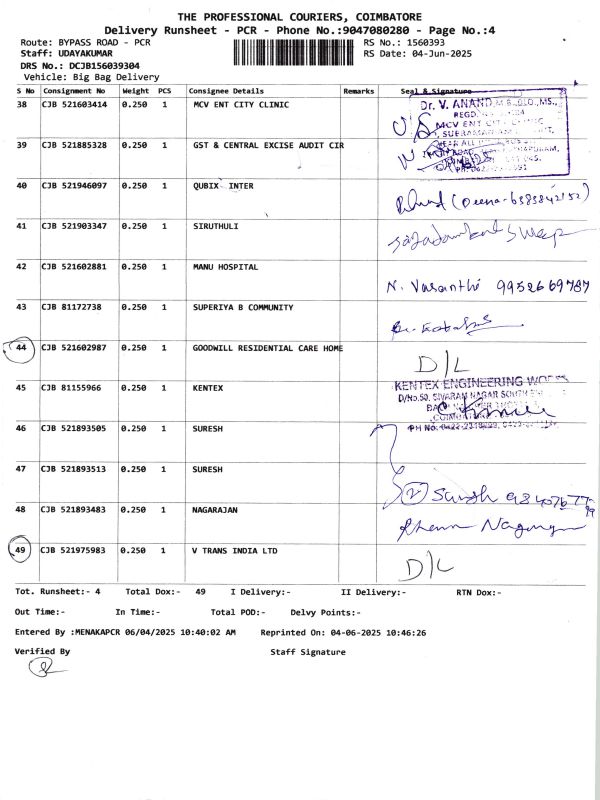 THE PROFESSIONAL COURIERS, COIMBATORE
Delivery Runsheet - PCR - Phone No.:9047080280 - Page No.:4
Route: BYPASS ROAD - PCR RS No.: 1560393
Staff: UDAYAKUMAR RS Date: 04-Jun-2025
DRS No.: DCJB156039304
Vehicle: Big Bag Delivery
S No Consignment No Weight PCS Consignee Details Remarks Seal & Signature
38 CJB 521603414 0.250 1 MCV ENT CITY CLINIC
Dr. V. ANAND
MCV ENT
39 CJB 521885328 0.250 1 GST & CENTRAL EXCISE AUDIT CIR
40 CJB 521946097 0.250 1 QUBIX INTER
41 CJB 521903347 0.250 1 SIRUTHULI
42 CJB 521602881 0.250 1 MANU HOSPITAL
N. Vasanthi 9952669787
43 CJB 81172738 0.250 1 SUPERIYA B COMMUNITY
44 CJB 521602987 0.250 1 GOODWILL RESIDENTIAL CARE HOME
D/L
45 CJB 81155966 0.250 1 KENTEX
KENTEX ENGINEERING WORKS
D/No.50, SIVARAM NAGAR
46 CJB 521893505 0.250 1 SURESH
47 CJB 521893513 0.250 1 SURESH
48 CJB 521893483 0.250 1 NAGARAJAN
49 CJB 521975983 0.250 1 V TRANS INDIA LTD
D/L
Tot. Runsheet:- 4 Total Dox:- 49 I Delivery:- II Delivery:- RTN Dox:-
Out Time:- In Time:- Total POD:- Delvy Points:-
Entered By :MENAKAPCR 06/04/2025 10:40:02 AM Reprinted On: 04-06-2025 10:46:26
Verified By Staff Signature